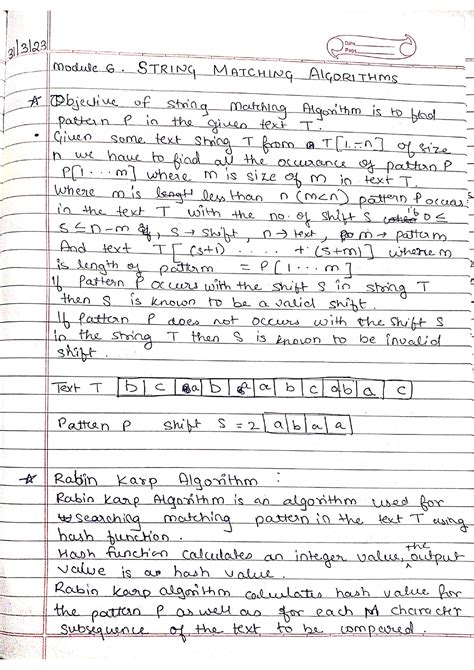 31/3/23
Date
Page
Module 6. STRING MATCHING ALGORITHMS
☆ Objective of string matching Algorithm is to find
pattern P in the given text T.
• Given some text string T from T[1..-n] of size
n we have to find all the occurance of pattern P
P[1...m] where m is size of m in text T.
Where m is less than n (m<n) pattern P occurs
in the text T with the no. of shift S if 0≤
S≤n-m, s → shift, n → text, m → pattern
And text T[(s+1) .... + (s+m)] where m
is length of pattern = P[1...m]
If Pattern P occurs with the shift S in string T
then S is known to be a valid shift.
If pattern P does not occurs with the shift S
in the string T then S is known to be invalid
shift.
Text T b c a b a a b c a b a c
Pattern P shift S = 2 a b a a
☆ Rabin Karp Algorithm :
Rabin Karp Algorithm is an algorithm used for
searching matching pattern in the text T using
hash function.
Hash function calculates an integer value, the output
value is a hash value.
Rabin Karp algorithm calculates hash value for
the pattern P as well as for each M character
subsequence of the text to be compared.